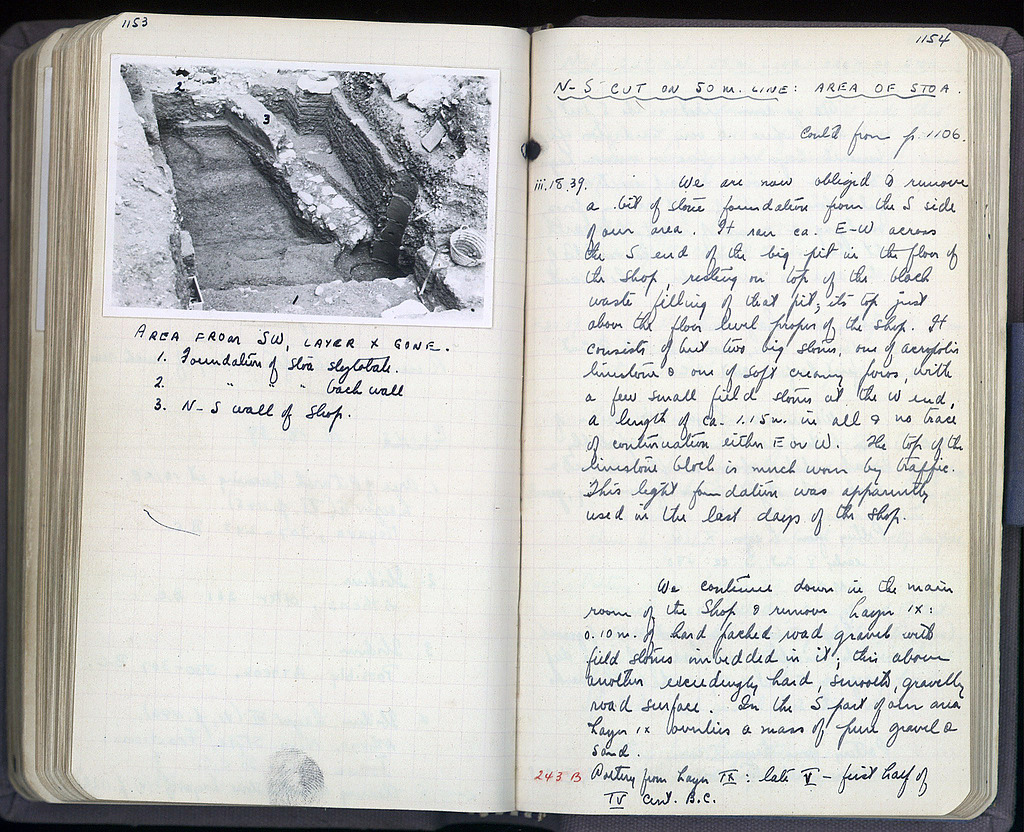 1153
2
3
AREA FROM SW, LAYER X GONE.
1. Foundation of Stoa stylobate.
2. " " " back wall
3. N-S wall of Shop.
1154
N-S CUT ON 50 m. LINE: AREA OF STOA.
Contd from p. 1106.
iii.18.39. We are now obliged to remove
a bit of stone foundation from the S side
of our area. It ran ca. E-W across
the S end of the big pit in the floor of
the Shop, resting on top of the black
waste filling of that pit; its top just
above the floor level proper of the Shop. It
consists of but two big stones, one of acropolis
limestone & one of soft creamy poros, with
a few small field stones at the W end,
a length of ca. 1.15 m. in all & no trace
of continuation either E or W. The top of the
limestone block is much worn by traffic.
This light foundation was apparently
used in the last days of the Shop.
We continue down in the main
room of the Shop & remove Layer IX:
0.10 m. of hard packed road gravel with
field stones imbedded in it; this above
another exceedingly hard, smooth, gravelly
road surface. In the S part of our area
Layer IX overlies a mass of pure gravel &
sand.
243 B Pottery from Layer IX: late V - first half of
IV Cent. B.C.